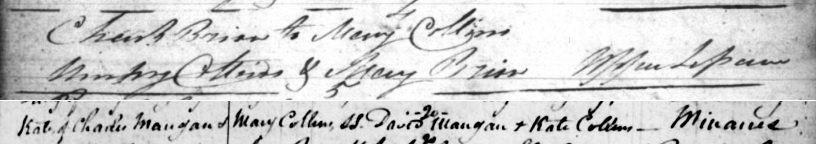 Charls Brion to Mary Collins
Collins & Mary Brion
Kate of Charles Mangan & Mary Collins, SS. David Mangan + Kate Collins — Minanes